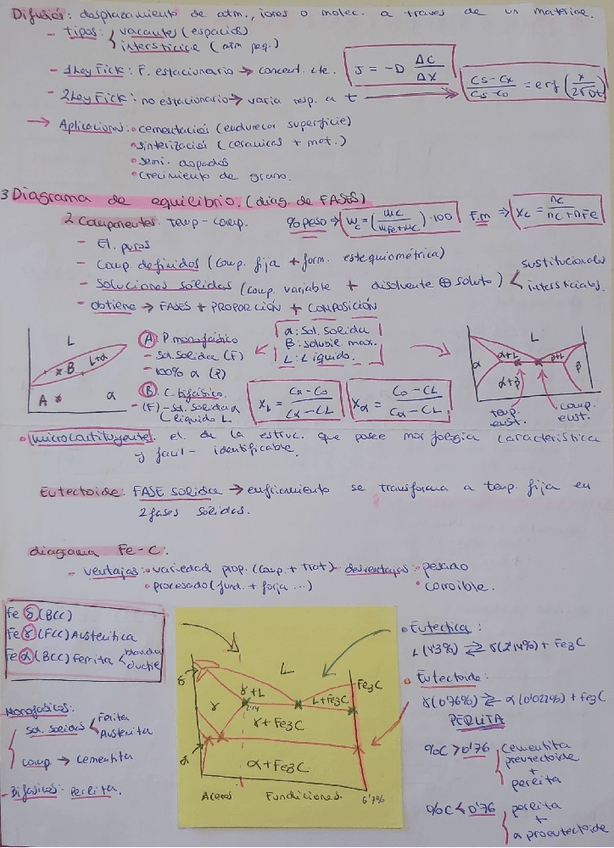 Difusión: desplazamiento de atm., iones o molec. a través de un material.
- tipos: vacantes (espacios)
intersticios (atm peq.)
- 1 Ley Fick: F. estacionario → concent. cte. J = -D ΔC/ΔX
- 2 Ley Fick: no estacionario → varia resp. a t → Cs-Cx/Cs-Co = erf (x/2√Dt)
→ Aplicaciones: • cementación (endurecer superficie)
• sinterización (ceramicas + met.)
• semi. dopados
• crecimiento de grano.
3 Diagrama de equilibrio. (diag. de FASES)
2 Componentes. temp - comp. % peso ⇒ Wc = (mc/mFe+mc) · 100 F.m ⇒ Xc = nc/nc+nFe
- El. puros
- Comp. definidos (comp. fija + form. estequiométrica)
- Soluciones sólidas (comp. variable + disolvente ⊕ soluto) sustitucionales
intersticiales.
- obtiene → FASES + PROPORCIÓN + COMPOSICIÓN
L
L+α
B
A
α
A: P. monofásico
- sol. solida (F)
- 100% α (P)
B: C. bifásico.
(F) - sol. solida α
líquido L
α: sol. solida
B: soluble max.
L: Líquido.
XL = Cα-Co/Cα-CL
Xα = Co-CL/Cα-CL
L
α
α+L
β+L
β
α+β
temp. eut.
comp. eut.
• microconstituyente: el. de la estruc. que posee morfologia característica
y facil- identificable.
Eutectoide: FASE SOLIDA → enfriamiento se transforma a temp. fija en
2 fases solidas.
diagrama Fe-C:
- ventajas: • variedad prop. (comp. + trat) desventajas: • pesado
• procesado (fund. + forja ...) • corroible.
Fe δ (BCC)
Fe γ (FCC) Austenítica
Fe α (BCC) Ferrita blanda
ductil
Monofasicos:
sol. solidas Ferrita
Austenita
comp → Cementita
- Bifasicos: Perlita.
L
δ
γ
γ+L
L+Fe3C
Fe3C
γ+Fe3C
α
α+Fe3C
Aceros Fundiciones. 6'7%
• Eutectica:
L (4'3%) ⇄ γ (2'14%) + Fe3C
• Eutectoide:
γ (0'76%) ⇄ α (0'022%) + Fe3C
PERLITA
%C > 0'76 cementita
proeutectoide
+
perlita
%C < 0'76 perlita
+
α proeutectoide